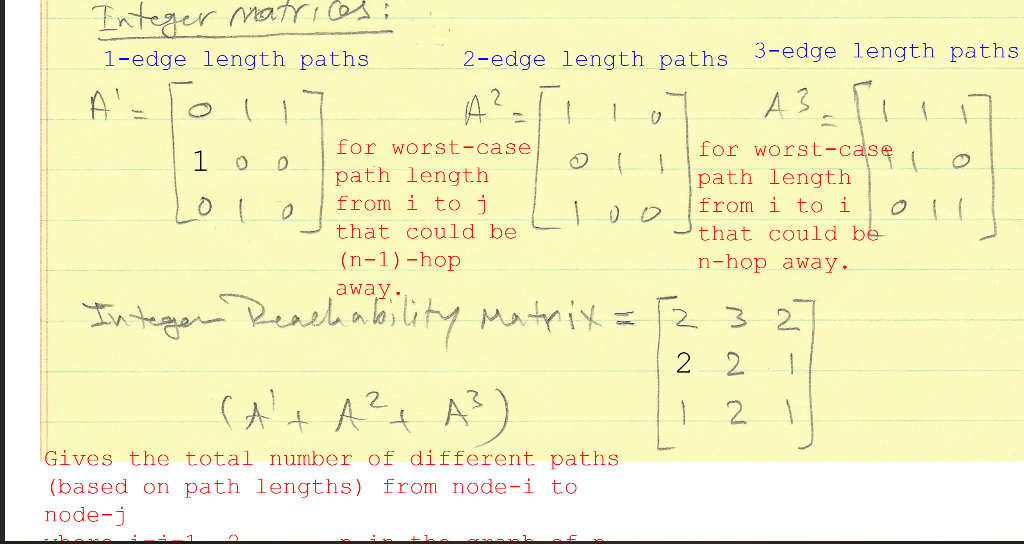 Integer Matrices:
1-edge length paths 2-edge length paths 3-edge length paths
A¹ = [0 1 1 A² = [1 1 0 A³ = [1 1 1
1 0 0 for worst-case 0 1 1 for worst-case 1 1 0
path length path length
0 1 0] from i to j 1 0 0] from i to i 0 1 1]
that could be that could be
(n-1)-hop n-hop away.
away.
Integer Reachability Matrix = [2 3 2
2 2 1
(A¹ + A² + A³) 1 2 1]
Gives the total number of different paths
(based on path lengths) from node-i to
node-j